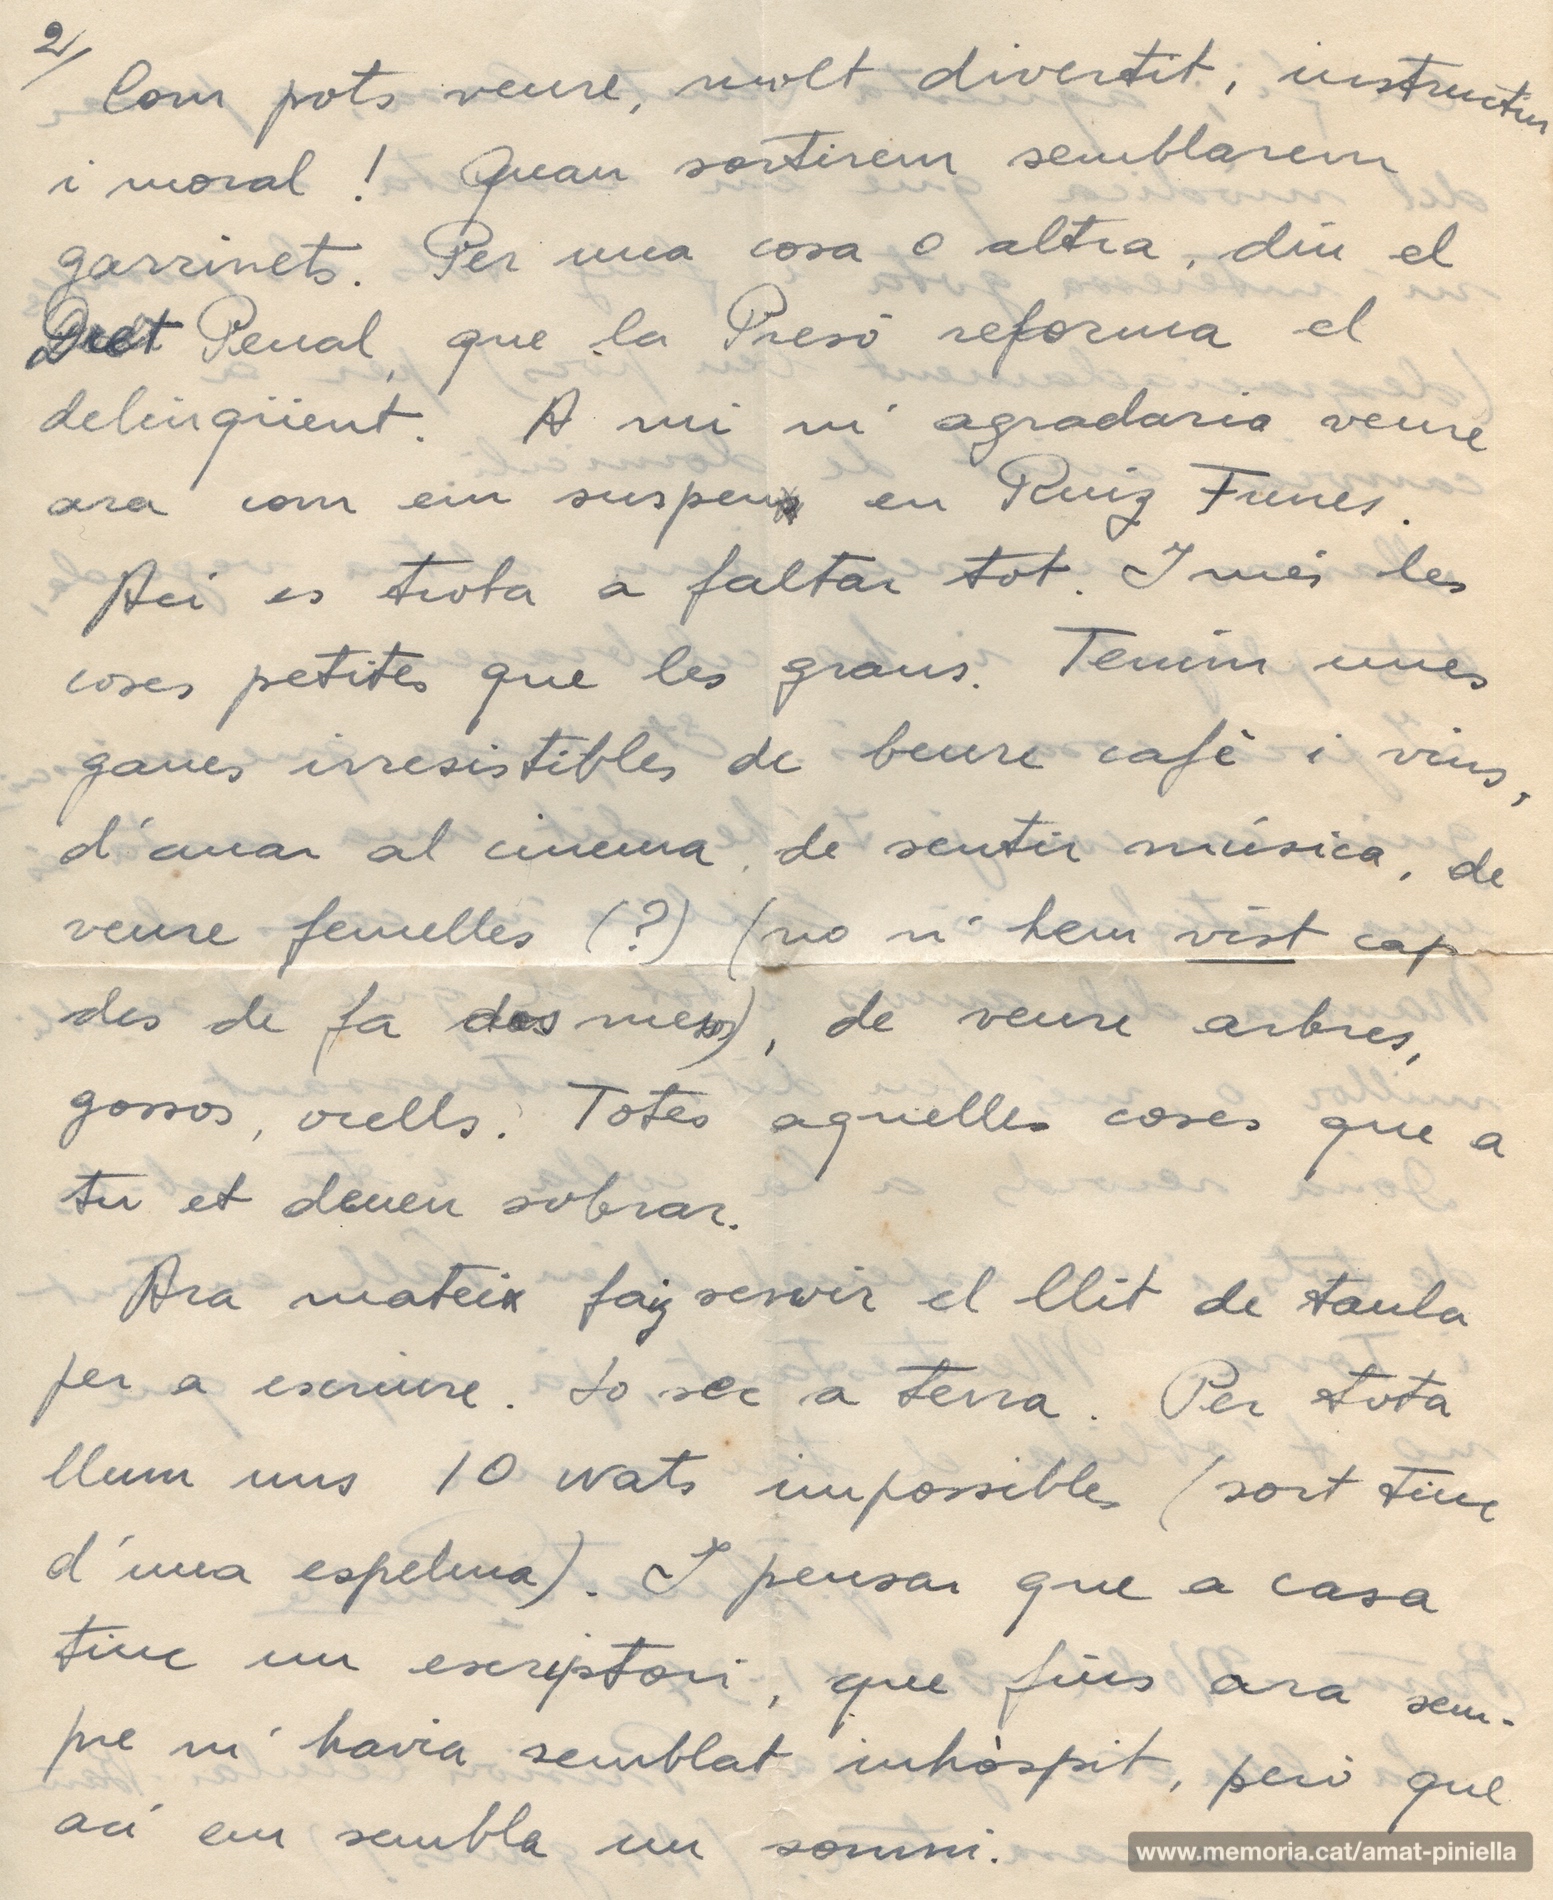 2/
Com pots veure, molt divertit, instructiu
i moral! Quan sortirem semblarem
garrinets. Per una cosa o altra, diu el
Dret Penal, que la Presó reforma el
delinqüent. A mi m'agradaria veure
ara com em suspen en Ruiz Funes.
Ací es troba a faltar tot. I més les
coses petites que les grans. Tenim unes
ganes irresistibles de beure cafè i vins,
d'anar al cinema, de sentir música, de
veure femelles (?) (no n'hem vist cap
des de fa dos mesos), de veure arbres,
gossos, ocells. Totes aquelles coses que a
tu et deuen sobrar.
Ara mateix faig servir el llit de taula
per a escriure. Jo sec a terra. Per tota
llum uns 10 wats impossibles (sort tinc
d'una espelma). I pensar que a casa
tinc un escriptori, que fins ara sem-
pre m'havia semblat inhòspit, però que
ací em sembla un somni.
www.memoria.cat/amat-piniella